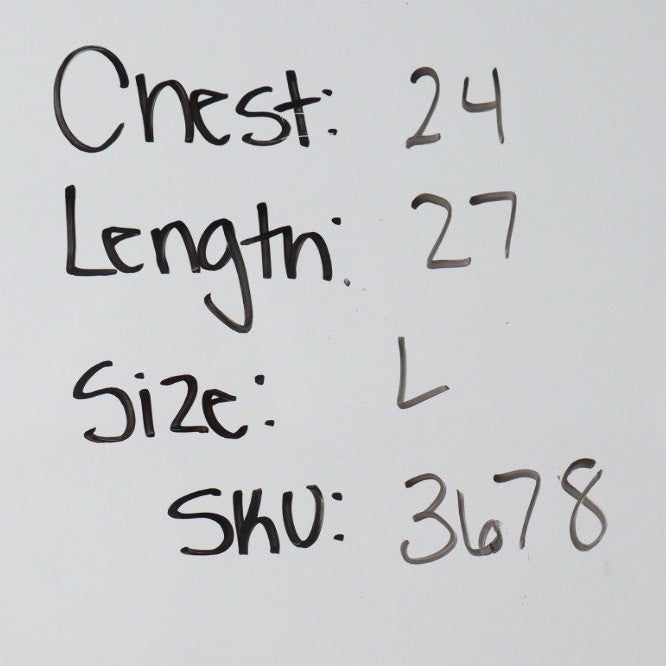 Chest: 24
Length: 27
Size: L
SKU: 3678